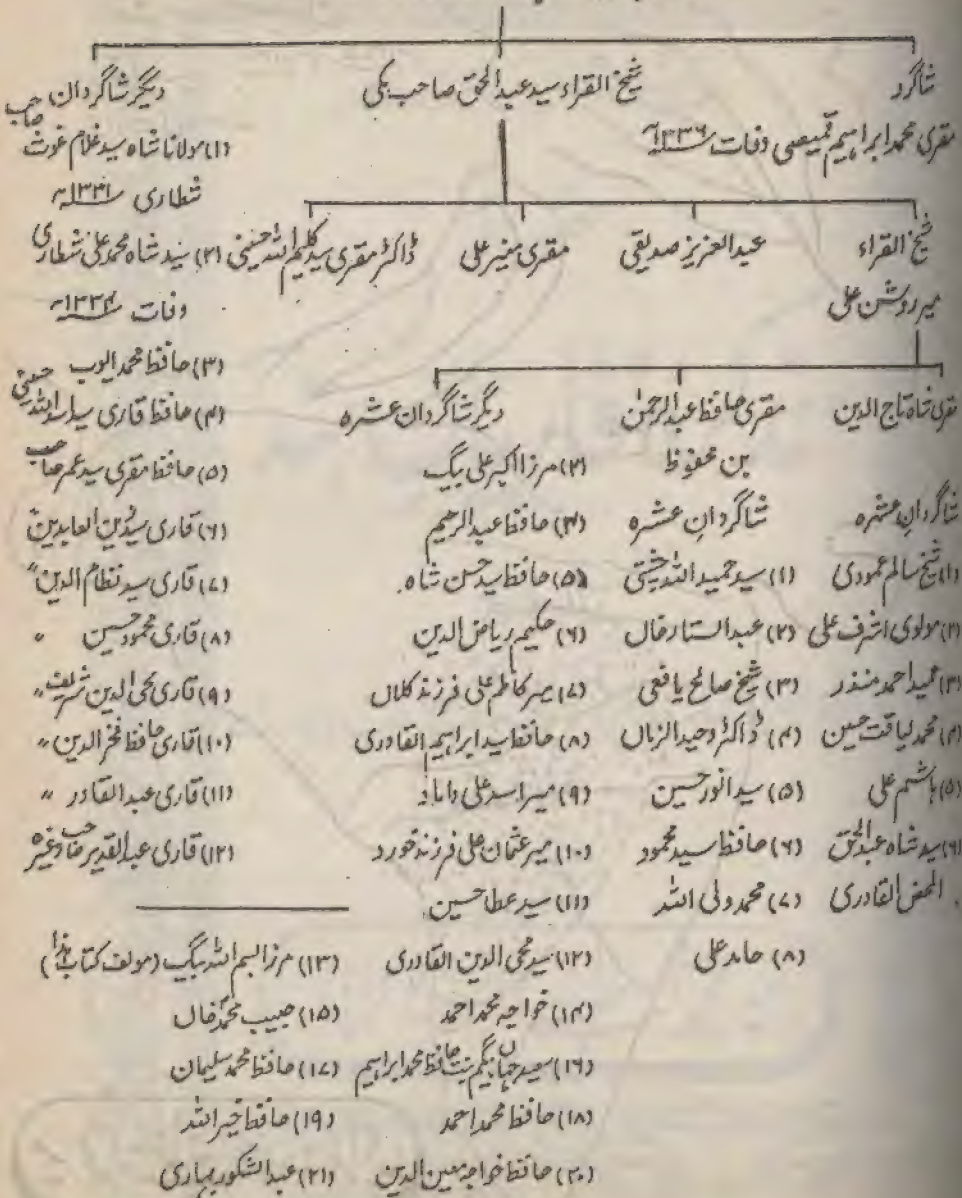 شاگرد
مقری محمد ابراہیم قمیصی وفات ۱۳۳۶ھ
شیخ القراء سید عبدالحق صاحب مکی
دیگر شاگردان
(۱) مولانا شاہ سید غلام غوث صاحب
شطاری ۱۳۳۱ھ
(۲) سید شاہ محمد علی شطاری
وفات ۱۳۳۴ھ
(۳) حافظ محمد ایوب
(۴) حافظ قاری سید اسد اللہ حسینی
(۵) حافظ مقری سید عمر صاحب
(۶) قاری سید زین العابدین
(۷) قاری سید نظام الدین ״
(۸) قاری محمود حسین ״
(۹) قاری محی الدین شریف ״
(۱۰) قاری حافظ فخر الدین ״
(۱۱) قاری عبدالقادر ״
(۱۲) قاری عبدالقدیر صاحب وغیرہ
شیخ القراء
میر روشن علی
عبدالعزیز صدیقی
مقری منیر علی
ڈاکٹر مقری سید کلیم اللہ حسینی
مقری شاہ تاج الدین
شاگردان عشرہ
(۱) شیخ سالم عمودی
(۲) مولوی اشرف علی
(۳) حمید احمد منذر
(۴) محمد لیاقت حسین
(۵) ہاشم علی
(۶) سید شاہ عبدالحق
المحض القادری
مقری حافظ عبدالرحمٰن
بن محفوظ
شاگردان عشرہ
(۱) سید حمید اللہ حسینی
(۲) عبدالستار خاں
(۳) شیخ صالح یافعی
(۴) ڈاکٹر وحید الزماں
(۵) سید انور حسین
(۶) حافظ سید محمود
(۷) محمد ولی اللہ
(۸) حامد علی
دیگر شاگردان عشرہ
(۳) مرزا اکبر علی بیگ
(۴) حافظ عبدالرحیم
(۵) حافظ سید حسن شاہ
(۶) حکیم ریاض الدین
(۷) میر کاظم علی فرزند کلاں
(۸) حافظ سید ابراہیم القادری
(۹) میر اسد علی داماد
(۱۰) میر عثمان علی فرزند خورد
(۱۱) سید عطا حسین
(۱۲) سید محی الدین القادری
(۱۳) مرزا بسم اللہ بیگ (مولف کتاب ہذا)
(۱۴) خواجہ محمد احمد
(۱۵) حبیب محمد خاں
(۱۶) سعید جہاں بیگم بنت حافظ محمد ابراہیم
(۱۷) حافظ محمد سلیمان
(۱۸) حافظ محمد احمد
(۱۹) حافظ خیر اللہ
(۲۰) حافظ خواجہ معین الدین
(۲۱) عبدالشکور بہاری